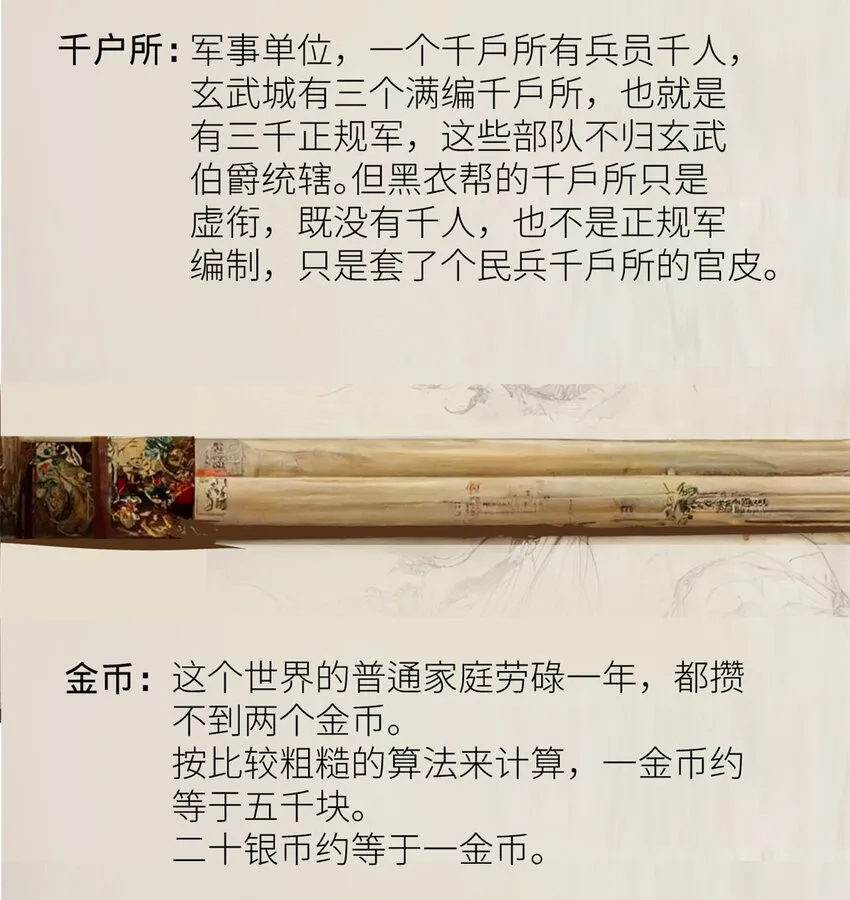 千户所：军事单位，一个千戶所有兵员千人，
玄武城有三个满编千戶所，也就是
有三千正规军，这些部队不归玄武
伯爵统辖。但黑衣帮的千戶所只是
虚衔，既没有千人，也不是正规军
编制，只是套了个民兵千戶所的官皮。
金币：这个世界的普通家庭劳碌一年，都攒
不到两个金币。
按比较粗糙的算法来计算，一金币约
等于五千块。
二十银币约等于一金币。